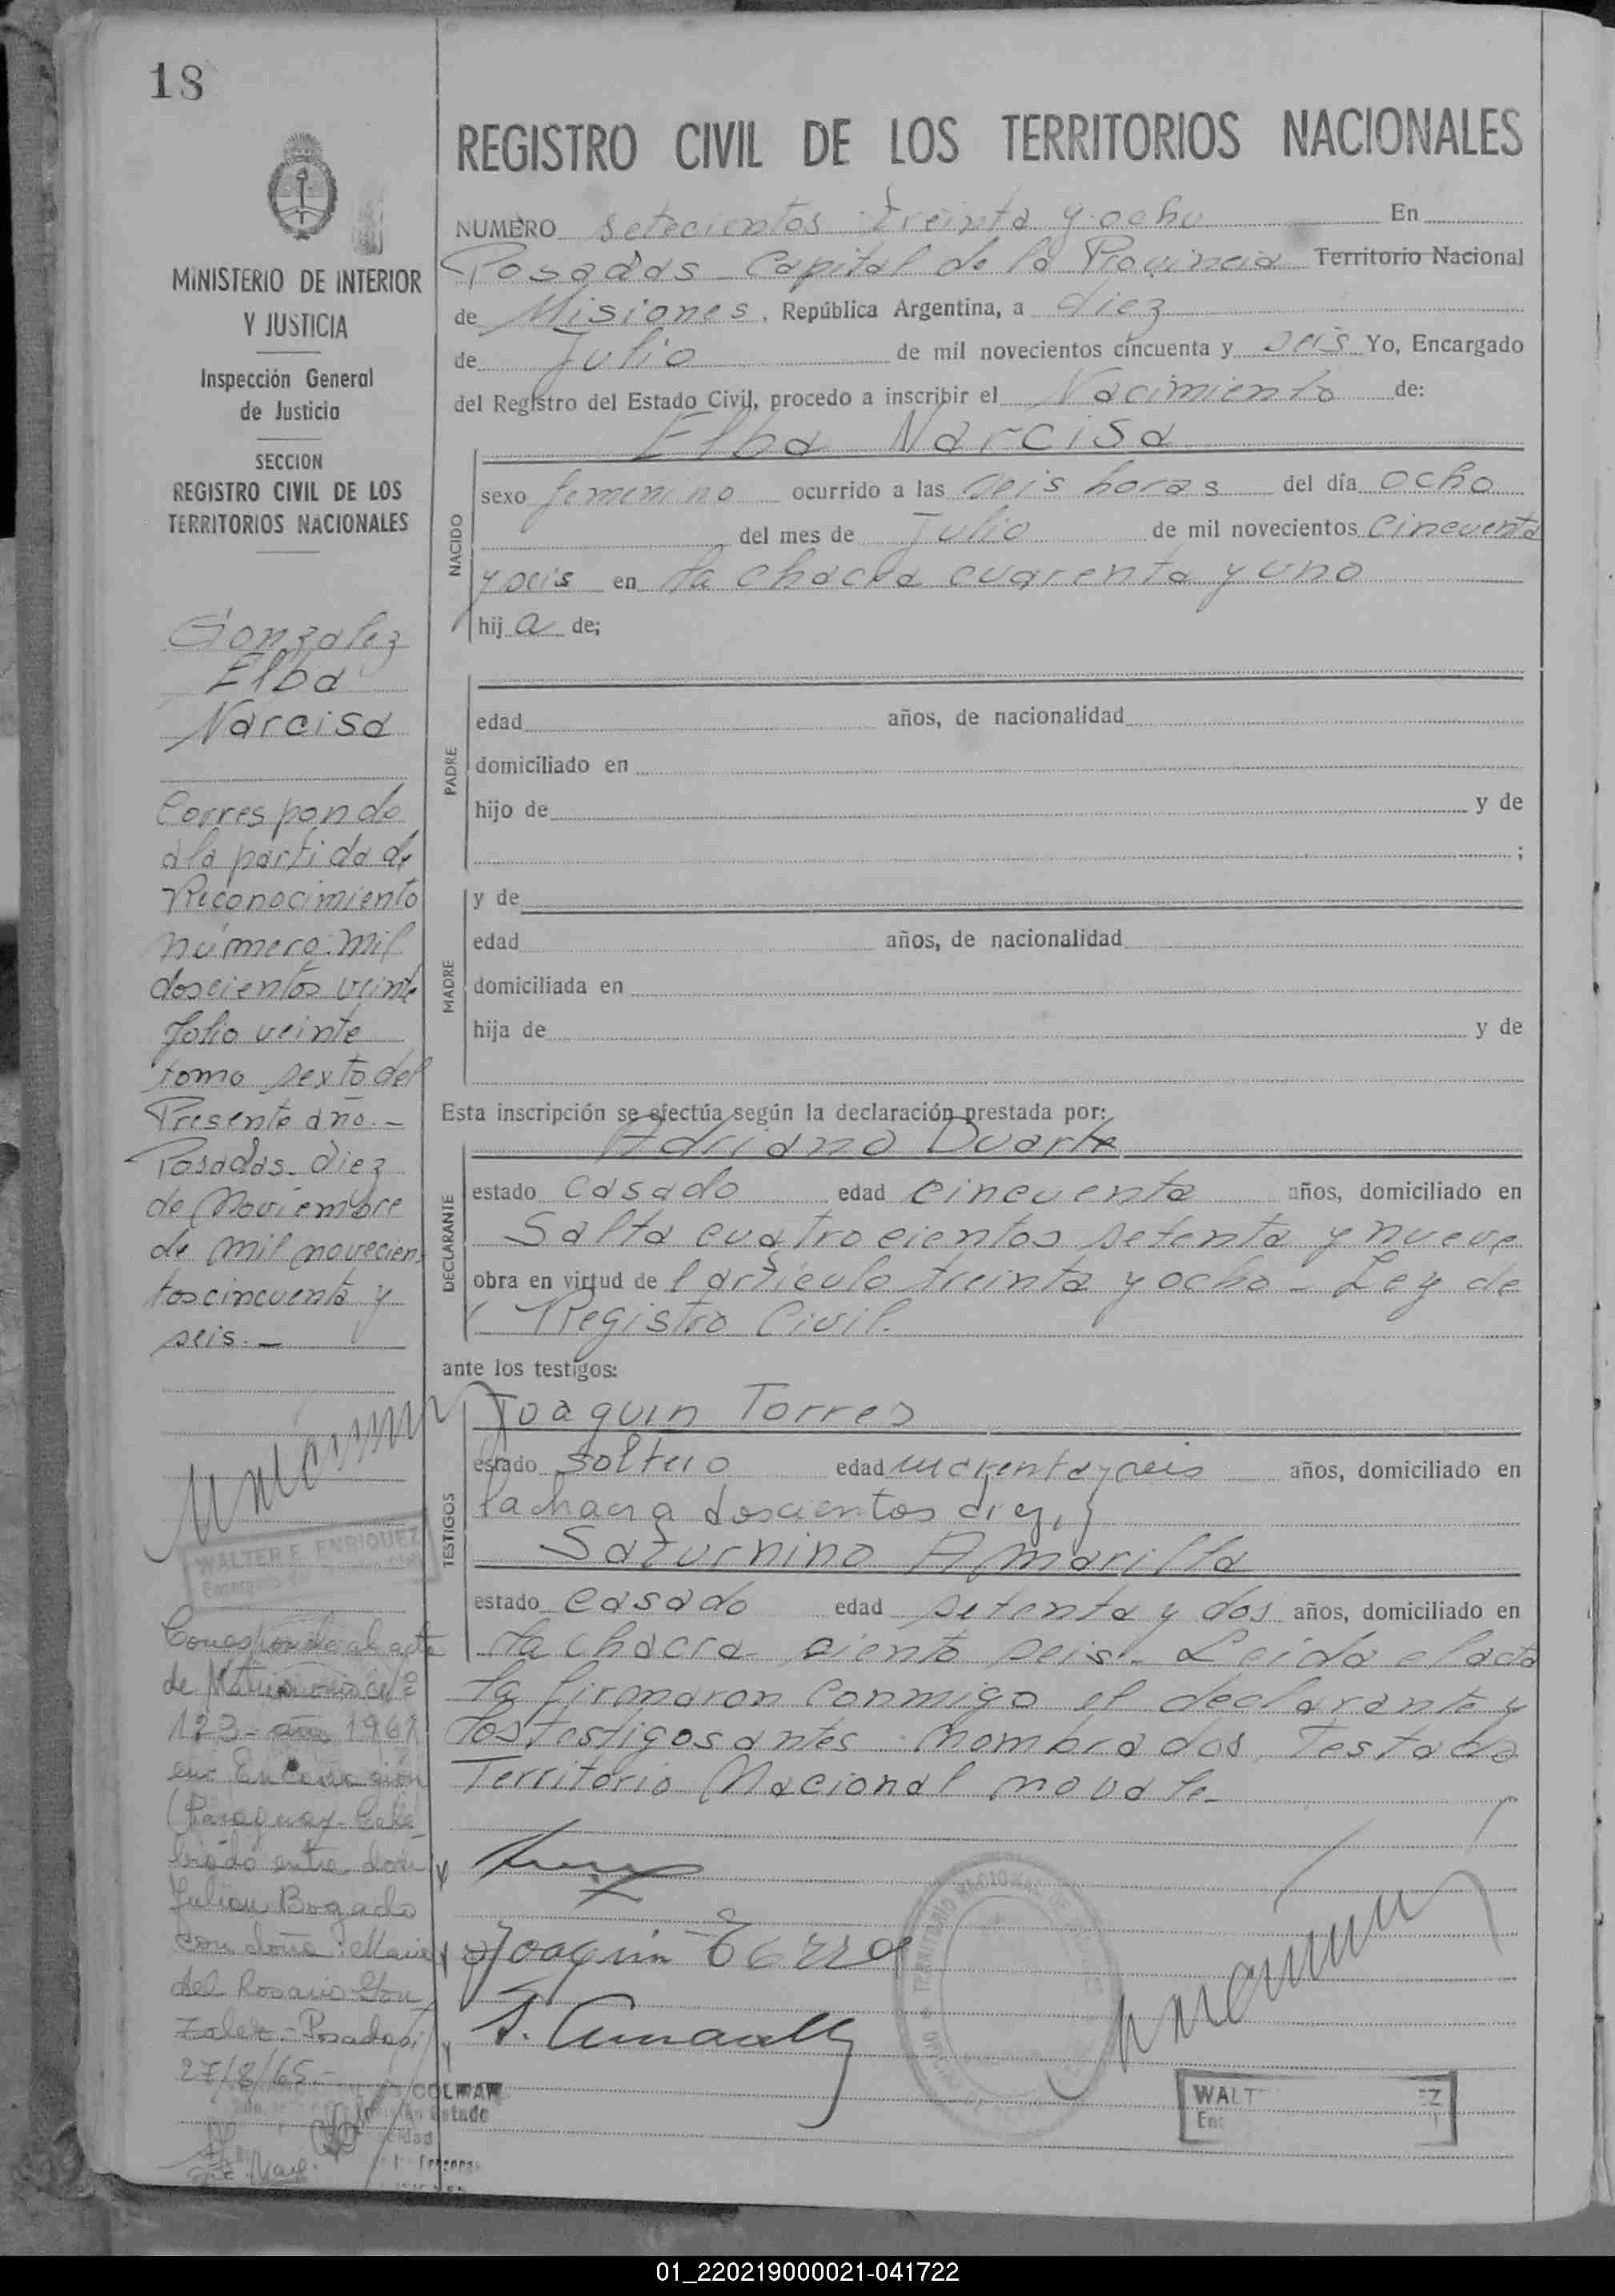 18
MINISTERIO DE INTERIOR
Y JUSTICIA
Inspección General
de Justicia
SECCION
REGISTRO CIVIL DE LOS
TERRITORIOS NACIONALES
Gonzalez
Elba
Narcisa
Corresponde
a la partida de
Reconocimiento
número: mil
doscientos veinte
folio veinte
tomo sexto del
Presente año.-
Posadas. diez
de Noviembre
de mil novecien
tos cincuenta y
seis.-
WALTER E. ENRIQUEZ
Encargado
Corresponde al acta
de Matrimonio nº
123- año 196
en: Encarnación
(Paraguay- Cele
brado entre don
Julian Bogado
con doña: Maria
del Rosario Gon
zalez.- Posadas;
27/8/65.-
REGISTRO CIVIL DE LOS TERRITORIOS NACIONALES
NUMERO setecientos treinta y ocho En
Posadas Capital de la Provincia Territorio Nacional
de Misiones, República Argentina, a diez
de Julio de mil novecientos cincuenta y seis Yo, Encargado
del Registro del Estado Civil, procedo a inscribir el Nacimiento de:
Elba Narcisa
NACIDO
sexo femenino ocurrido a las seis horas del día ocho
del mes de Julio de mil novecientos cincuenta
y seis en la chacra cuarenta y uno
hij a de;
PADRE
edad años, de nacionalidad
domiciliado en
hijo de y de
;
MADRE
y de
edad años, de nacionalidad
domiciliada en
hija de y de
Esta inscripción se efectúa según la declaración prestada por:
Adriano Duarte
DECLARANTE
estado casado edad cincuenta años, domiciliado en
Salta cuatrocientos setenta y nueve
obra en virtud de l artículo treinta y ocho - Ley de
Registro Civil.
ante los testigos:
Joaquin Torres
TESTIGOS
estado soltero edad cuarenta y seis años, domiciliado en
la chacra doscientos diez, y
Saturnino Amarilla
estado casado edad setenta y dos años, domiciliado en
la chacra ciento seis.- Leida el acta
la firmaron conmigo el declarante y
los testigos antes nombrados. Testado
Territorio Nacional no vale-
Joaquin Torres
S. Amarilla
WALT EZ
Enc
01_220219000021-041722